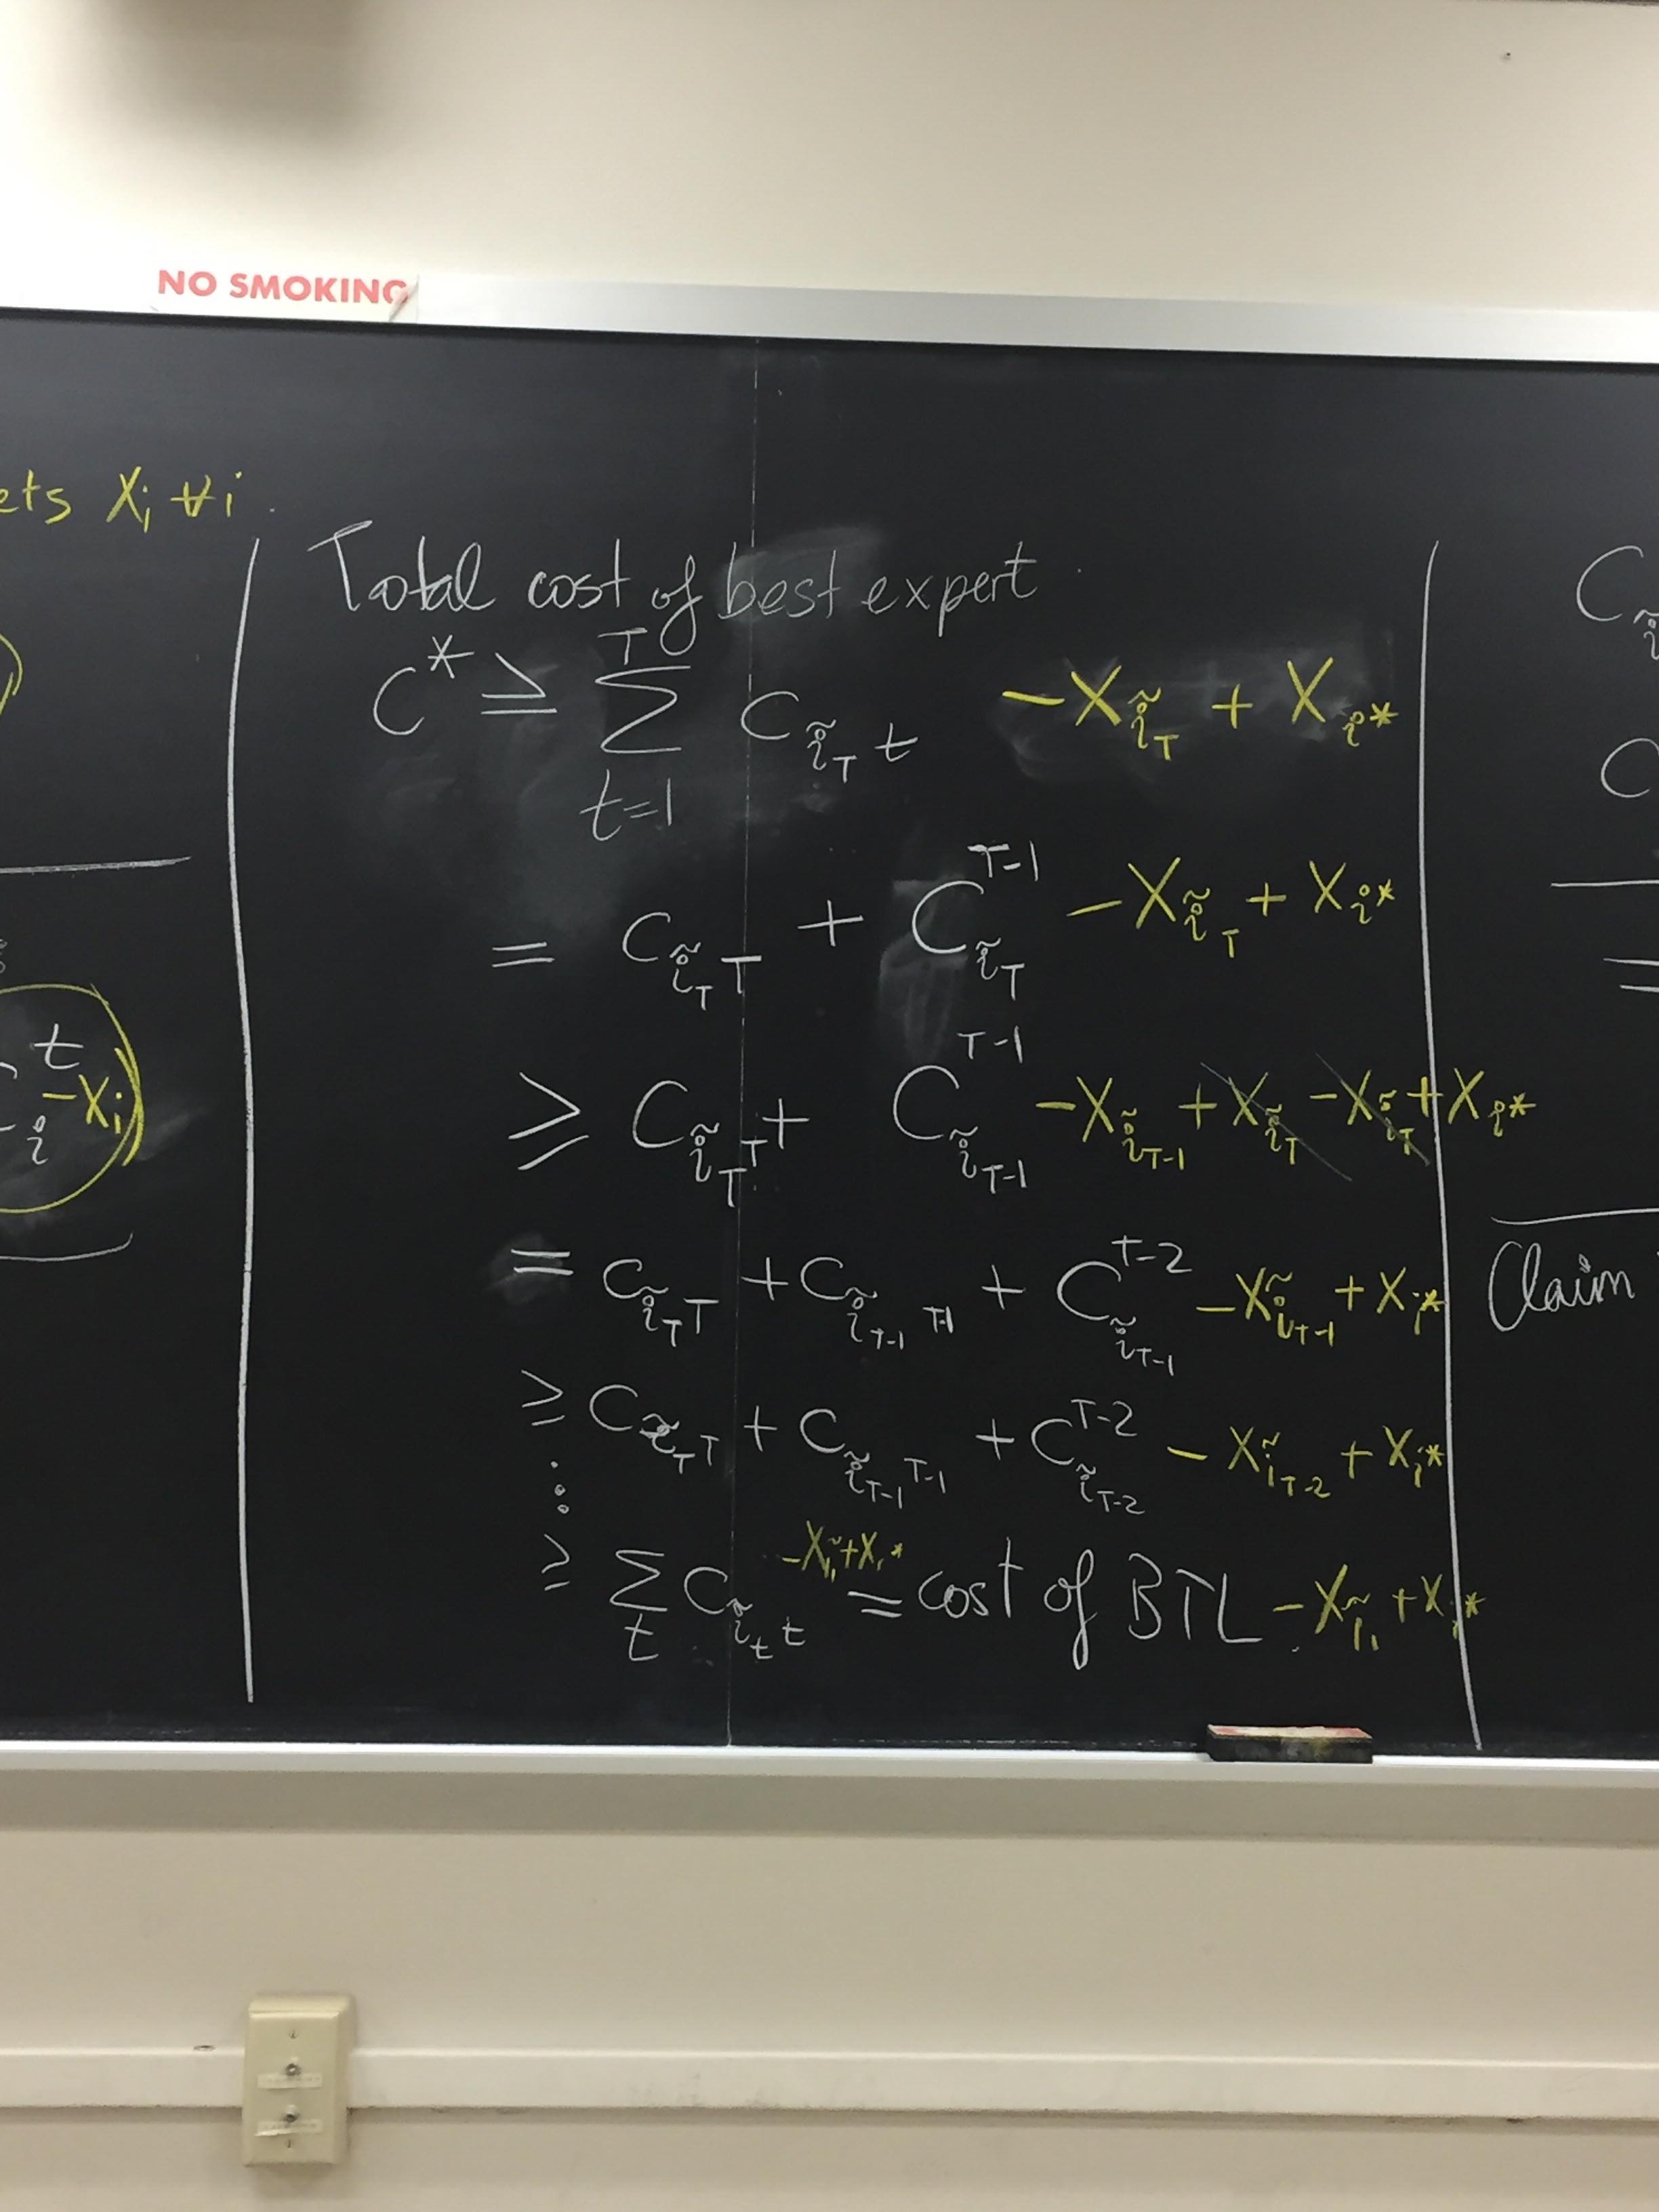 NO SMOKING
ets Xᵢ ∀i.
C_i^t - Xᵢ)
Total cost of best expert
C* ≥ ∑_{t=1}^{T} C_{ĩ_T t} - X_{ĩ_T} + X_{i*}
= C_{ĩ_T T} + C_{ĩ_T}^{T-1} - X_{ĩ_T} + X_{i*}
≥ C_{ĩ_T T} + C_{ĩ_{T-1}}^{T-1} - X_{ĩ_{T-1}} + X_{ĩ_T} - X_{ĩ_T} + X_{i*}
= C_{ĩ_T T} + C_{ĩ_{T-1} T-1} + C_{ĩ_{T-1}}^{T-2} - X_{ĩ_{T-1}} + X_{i*}
≥ C_{ĩ_T T} + C_{ĩ_{T-1} T-1} + C_{ĩ_{T-2}}^{T-2} - X_{ĩ_{T-2}} + X_{i*}
⋮
≥ ∑_t C_{ĩ_t t} - X_{ĩ_1} + X_{i*} = cost of BTL - X_{ĩ_1} + X_{i*}
C_ĩ
C
=
Claim